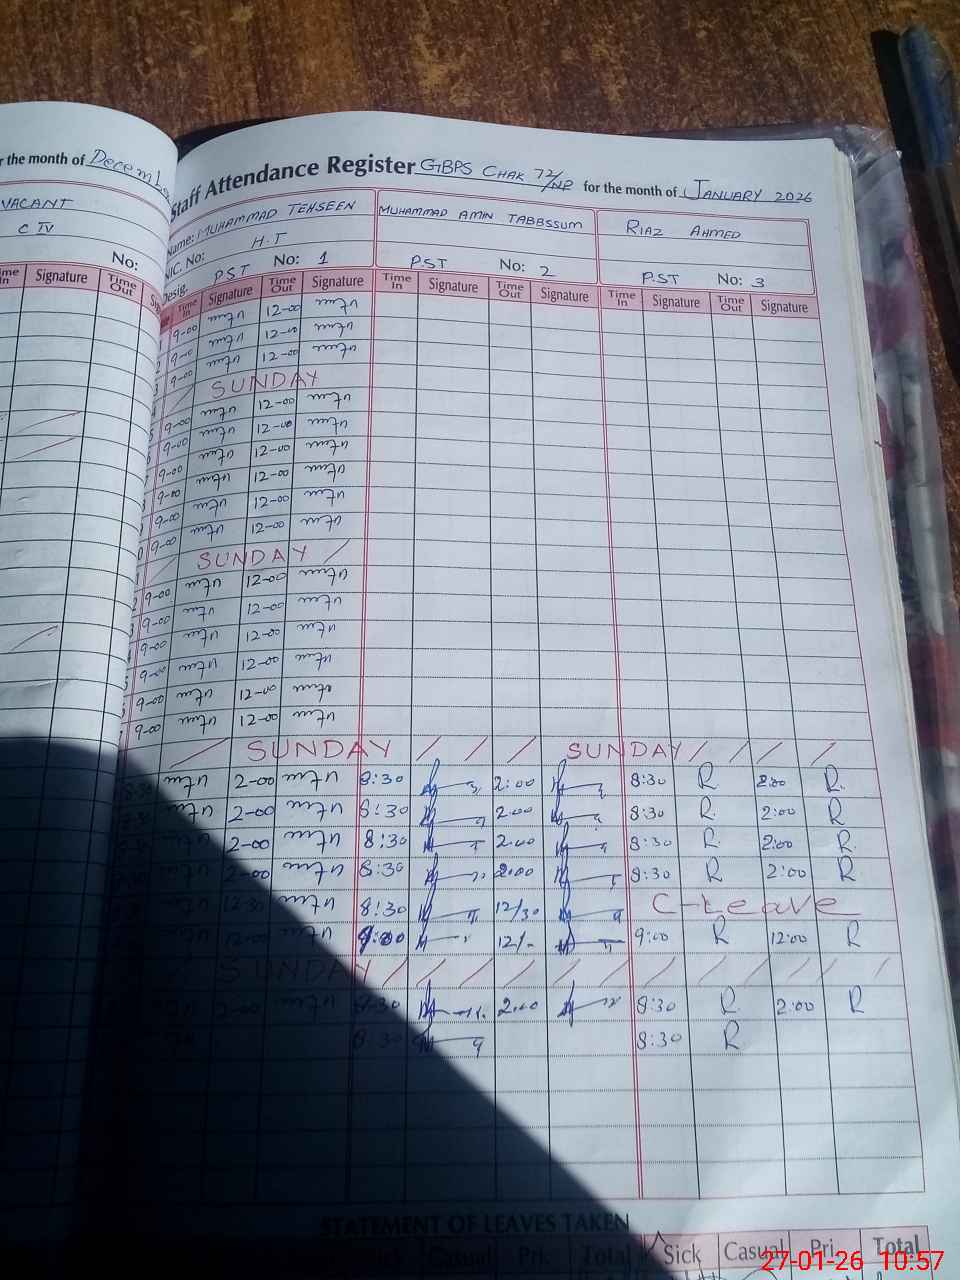 r the month of December
Staff Attendance Register GBPS CHAK 72/NP for the month of JANUARY 2026
VACANT
CTV
No:
Name: MUHAMMAD TEHSEEN MUHAMMAD AMIN TABBSSUM RIAZ AHMED
NIC. No: H.T
Desig. PST No: 1 P.ST No: 2 P.ST No: 3
Signature Time Out
Time In Signature Time Out Signature Time In Signature Time Out Signature Time In Signature Time Out Signature
9-00 12-00
9-00 12-00
9-00 12-00
SUNDAY
9-00 12-00
9-00 12-00
9-00 12-00
9-00 12-00
9-00 12-00
9-00 12-00
SUNDAY
9-00 12-00
9-00 12-00
9-00 12-00
9-00 12-00
9-00 12-00
9-00 12-00
SUNDAY SUNDAY
2-00 8:30 2:00 8:30 R 2:00 R
2-00 8:30 2:00 8:30 R 2:00 R
2-00 8:30 2:00 8:30 R 2:00 R
2-00 8:30 2:00 8:30 R 2:00 R
12-30 8:30 12/30 C-Leave
12-00 9:00 12/- 9:00 R 12:00 R
SUNDAY
2-00 8:30 2:00 8:30 R 2:00 R
8:30 8:30 R
STATEMENT OF LEAVES TAKEN
Sick Casual Pri. Total Sick Casual Pri. Total
27-01-26 10:57